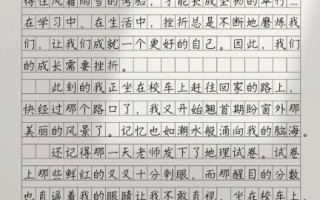 得住风霜雨雪的考验，才能长成坚韧的翠竹…
在学习中、在生活中，挫折总是不断地磨炼我
们，让我们成就一个更好的自己。因此，我们
的成长需要挫折。
此刻的我正坐在校车上赶往回家的路上，
快经过那个路口了，我又开始翘首期盼窗外那
美丽的风景了。记忆也如潮水般涌向我的脑海。
还记得那一天老师发下了地理试卷。试卷
上那些鲜红的叉叉十分刺眼，而那醒目的分数
也直逼着我的眼睛让我不敢直视。坐在校车上，